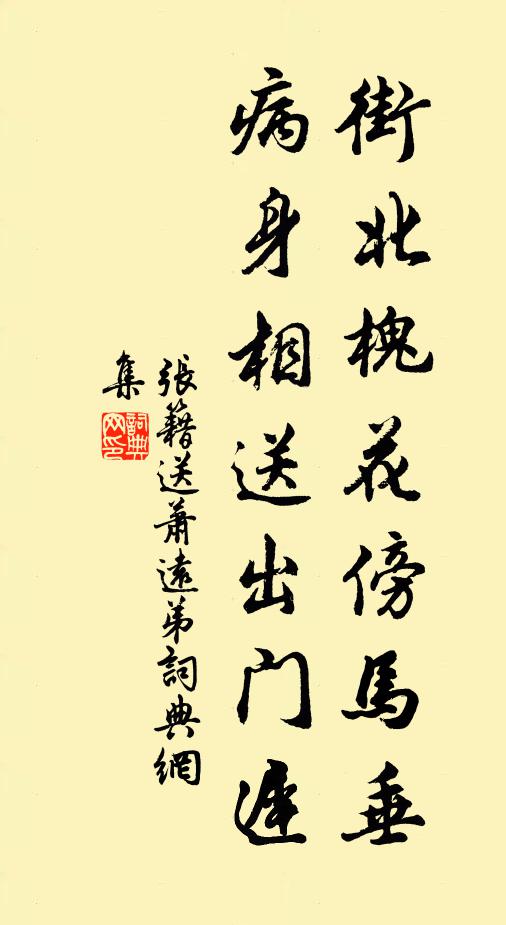 街北槐花傍馬垂
病身相送出門遲
張籍送蕭遠弟詞典網
集
詞典
网印